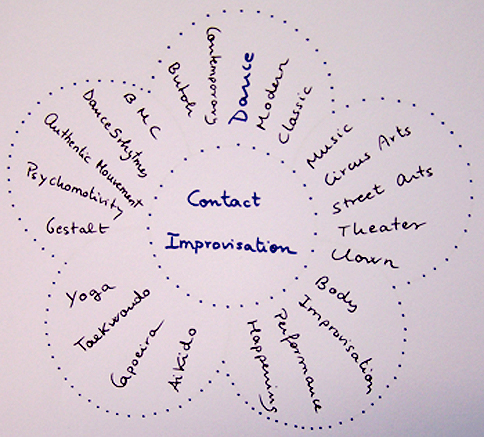 Contact
Improvisation
Butoh
Contemporary
Dance
Modern
Classic
Music
Circus Arts
Street Arts
Theater
Clown
Body
Improvisation
Performance
Happening
Aikido
Capoeira
Taekwondo
Yoga
Gestalt
Psychomotivity
Authentic Mouvement
Dance5rhytmes
BMC